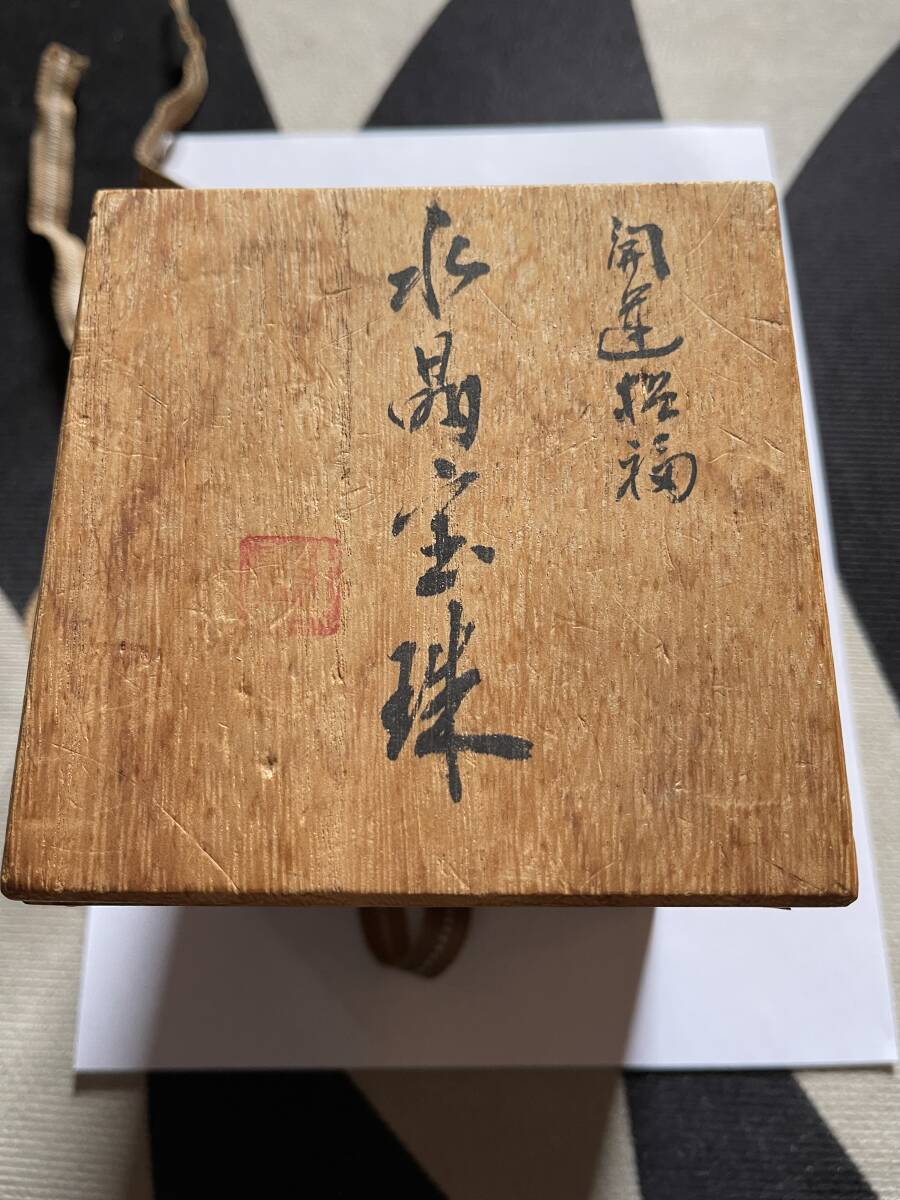 開運招福
水晶宝珠